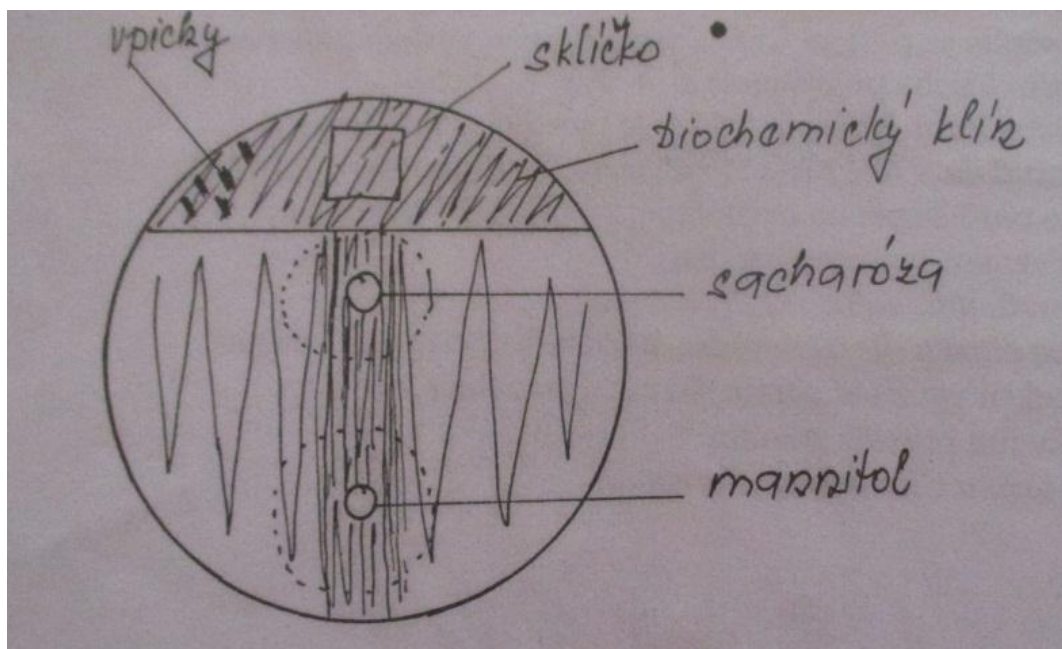 vpichy
sklíčko
biochemický klín
sacharóza
mannitol